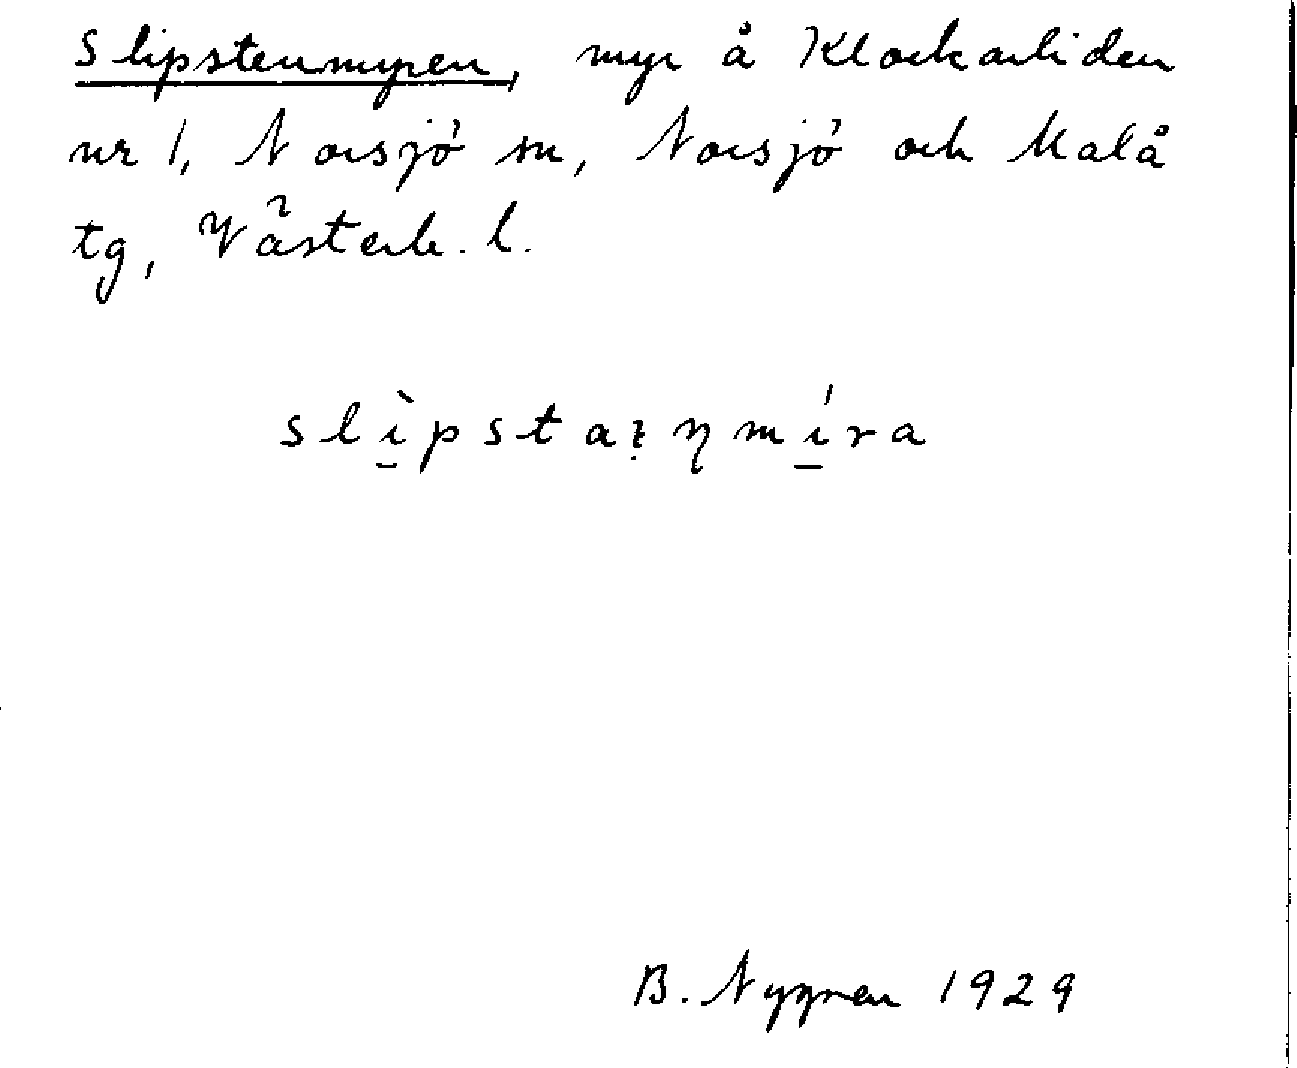 Slipstenmyren, myr å Klockarliden
nr 1, Norsjö sn, Norsjö och Malå
tg, Västerb. l.
slìpstaɪŋmíra
B. Nygren 1929